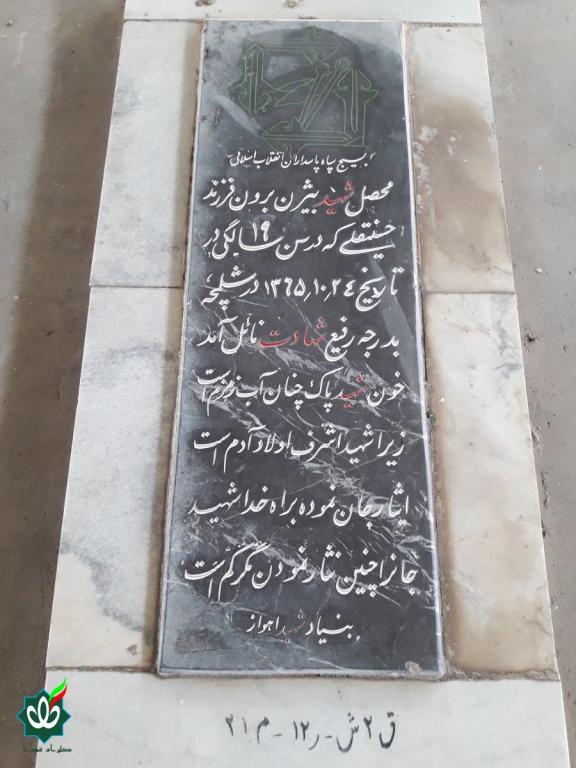 بسیج سپاه پاسداران انقلاب اسلامی
محصل شهید بیژن برون فرزند
حسینقلی که در سن ۱۹ سالگی در
تاریخ ۱۳۶۵٫۱۰٫۲۴ در شلمچه
بدرجه رفیع شهادت نائل آمد
خون شهید پاک چنان آب زمزم است
زیرا شهید اشرف اولاد آدم است
ایثار جان نموده براه خدا شهید
جانرا چنین نثار نمودن مگر کم است
بنیاد شهید اهواز
ق ۲ ش - ر ۱۲ - م ۲۱